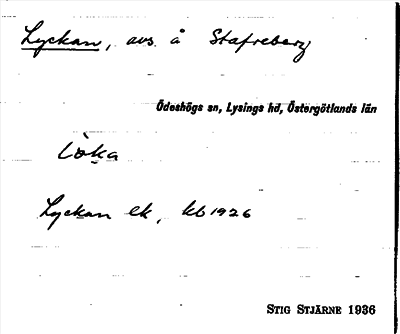 Lyckan, avs. å Stafreberg
Ödeshögs sn, Lysings hd, Östergötlands län
Lyckan ek, kb 1926
STIG STJÄRNE 1936